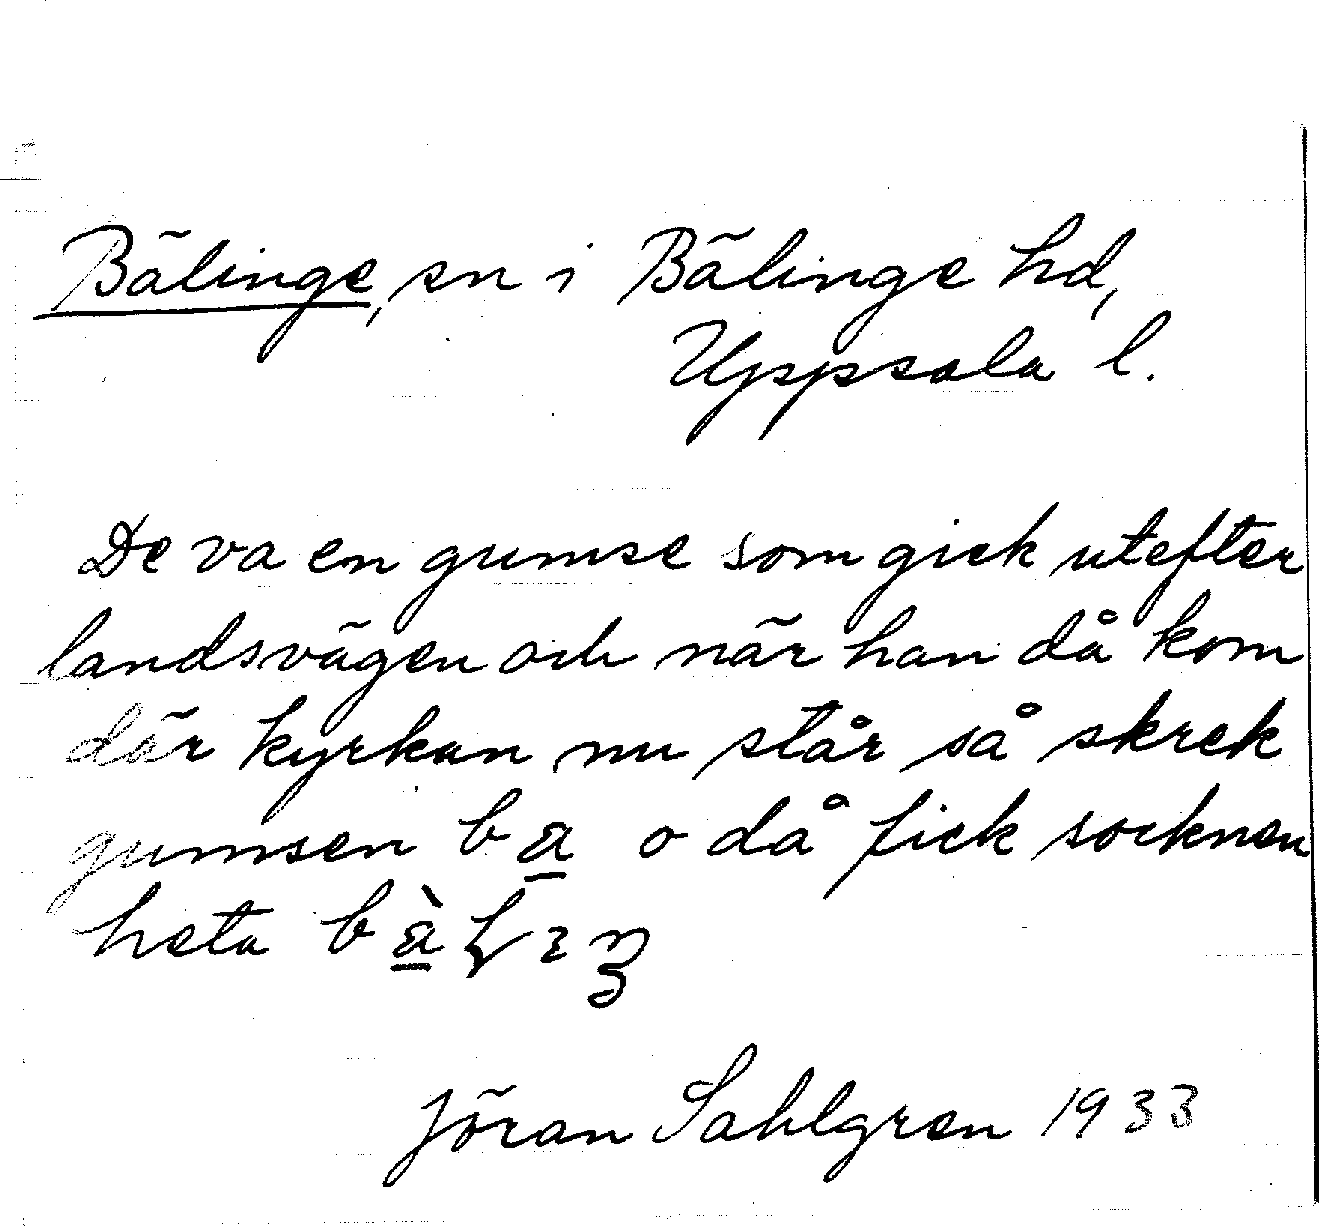 Bälinge, sn i Bälinge hd,
Uppsala l.
De va en gumse som gick utefter
landsvägen och när han då kom
där kyrkan nu står så skrek
gumsen ba o då fick socknen
heta
Jöran Sahlgren 1933